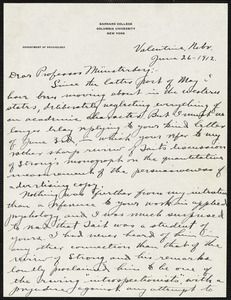 BARNARD COLLEGE
COLUMBIA UNIVERSITY
NEW YORK
DEPARTMENT OF PSYCHOLOGY
Valentine, Nebr.
June 26 - 1912.
Dear Professor Münsterberg:
Since the latter part of May I
have been moving about in the western
states, deliberately neglecting everything of
an academic character. But I must no
longer delay replying to your kind letter
of June 3rd, in which you refer to my
review of Tait's discussion
of Strong's monograph on the quantitative
measurement of the persuasiveness of
advertising copy.
Nothing was further from my intention
than a reference to your work in applied
psychology and I was much surprised
to read that Tait was a student of
yours. I had never heard of him in
any other connection than that of the
review of Strong and his remarks
loudly proclaimed him to be one of
the "raving introspectionists", with a
prejudice against any attempt to